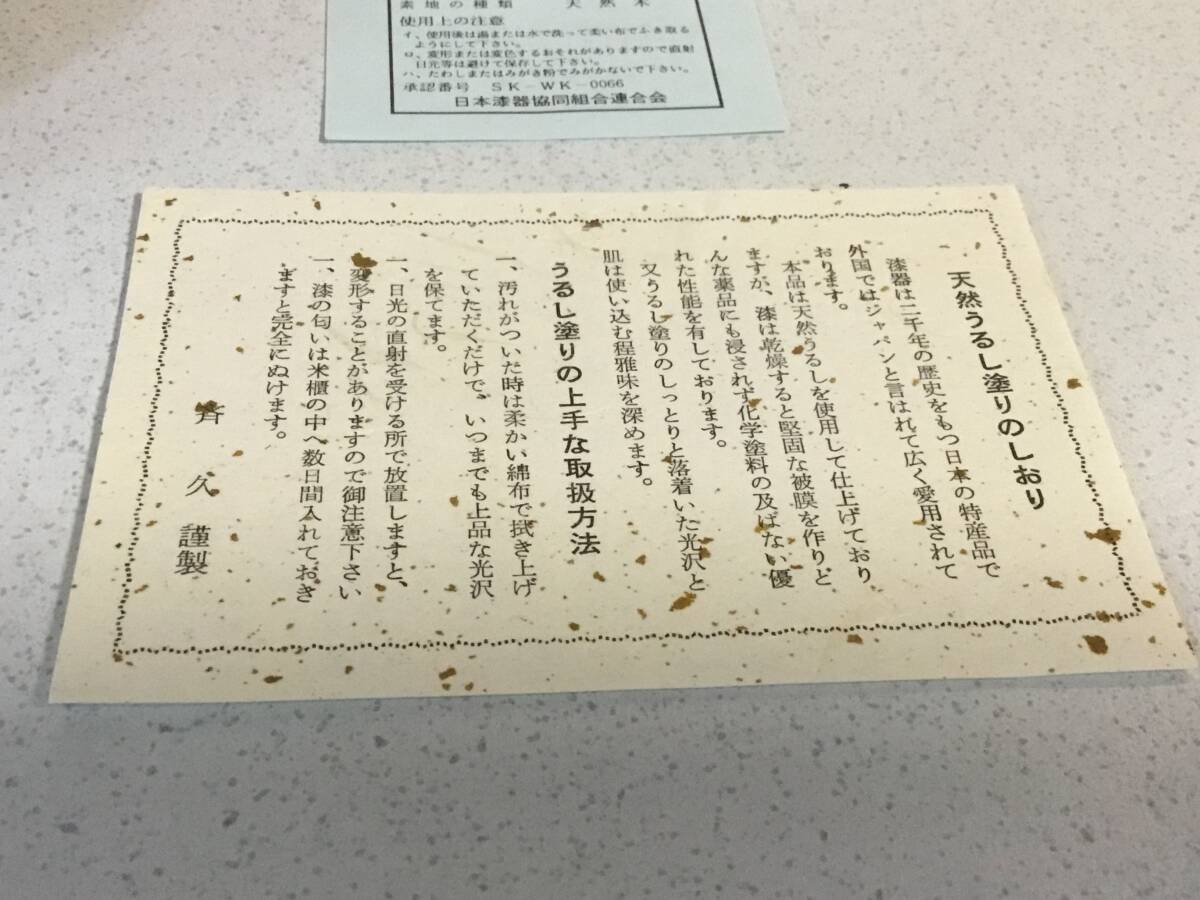 素地の種類 天然木
使用上の注意
イ、使用後は湯または水で洗って柔い布でふき取る
ようにして下さい。
ロ、変形または変色するおそれがありますので直射
日光等は避けて保存して下さい。
ハ、たわしまたはみがき粉でみがかないで下さい。
承認番号 SK-WK-0066
日本漆器協同組合連合会
天然うるし塗りのしおり
漆器は二千年の歴史をもつ日本の特産品で
外国ではジャパンと言はれて広く愛用されて
おります。
本品は天然うるしを使用して仕上げており
ますが、漆は乾燥すると堅固な被膜を作りど
んな薬品にも浸されず化学塗料の及ばない優
れた性能を有しております。
又うるし塗りのしっとりと落着いた光沢と
肌は使い込む程雅味を深めます。
うるし塗りの上手な取扱方法
一、汚れがついた時は柔かい綿布で拭き上げ
ていただくだけで、いつまでも上品な光沢
を保てます。
一、日光の直射を受ける所で放置しますと、
変形することがありますので御注意下さい
一、漆の匂いは米櫃の中へ数日間入れておき
ますと完全にぬけます。
斉久謹製